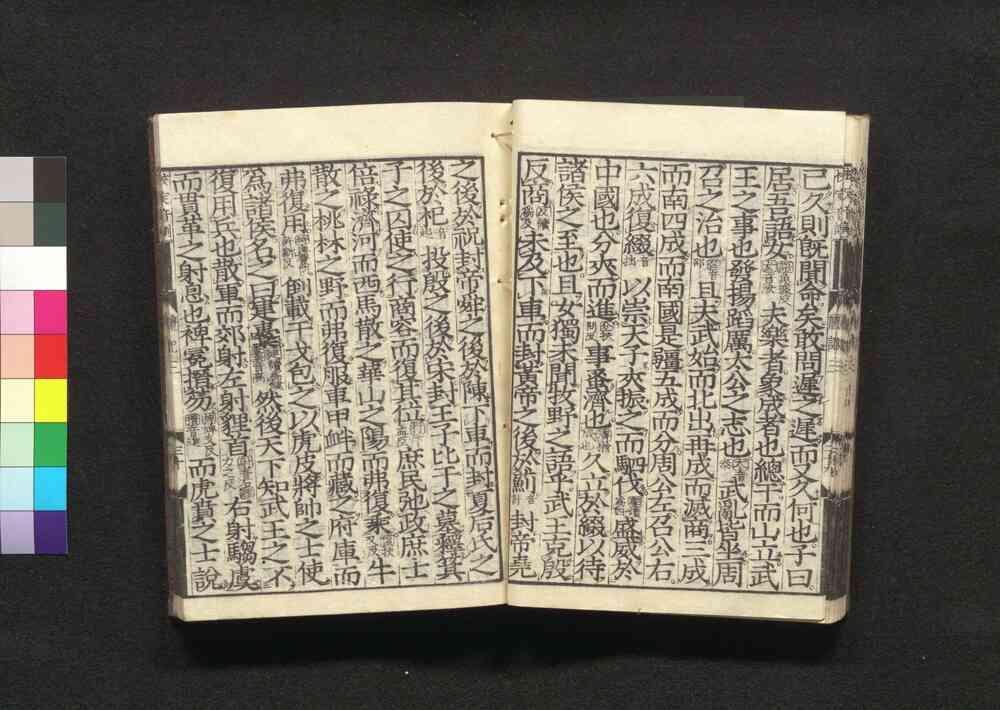 已久則既聞命矣敢問遲之遲而又久何也子曰
居吾語女夫樂者象成者也總干而山立武
王之事也發揚蹈厲太公之志也武亂皆坐周
召之治也且夫武始而北出再成而滅商三成
而南四成而南國是疆五成而分周公左召公右
六成復綴以崇天子夾振之而駟伐盛威於
中國也分夾而進事蚤濟也久立於綴以待
諸侯之至也且女獨未聞牧野之語乎武王克殷
反商未及下車而封黃帝之後於薊封帝堯
之後於祝封帝舜之後於陳下車而封夏后氏之
後於杞投殷之後於宋封王子比干之墓釋箕
子之囚使之行商容而復其位庶民弛政庶士
倍祿濟河而西馬散之華山之陽而弗復乘牛
散之桃林之野而弗復服車甲衅而藏之府庫而
弗復用倒載干戈包之以虎皮將帥之士使
為諸侯名之曰建櫜然後天下知武王之不
復用兵也散軍而郊射左射貍首右射騶虞
而貫革之射息也裨冕搢笏而虎賁之士說